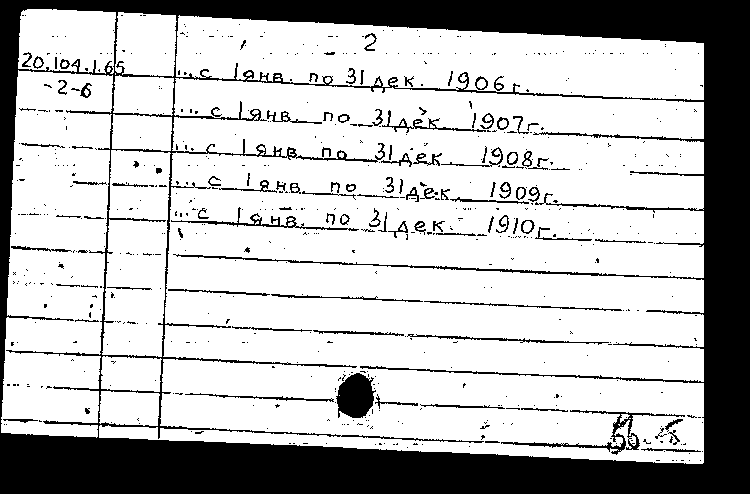 2
20.104.1.65 ...с 1 янв. по 31 дек. 1906 г.
-2-6 ...с 1 янв. по 31 дек 1907 г.
...с 1 янв. по 31 дек 1908 г.
...с 1 янв. по 31 дек. 1909 г.
...с 1 янв. по 31 дек. 1910 г.